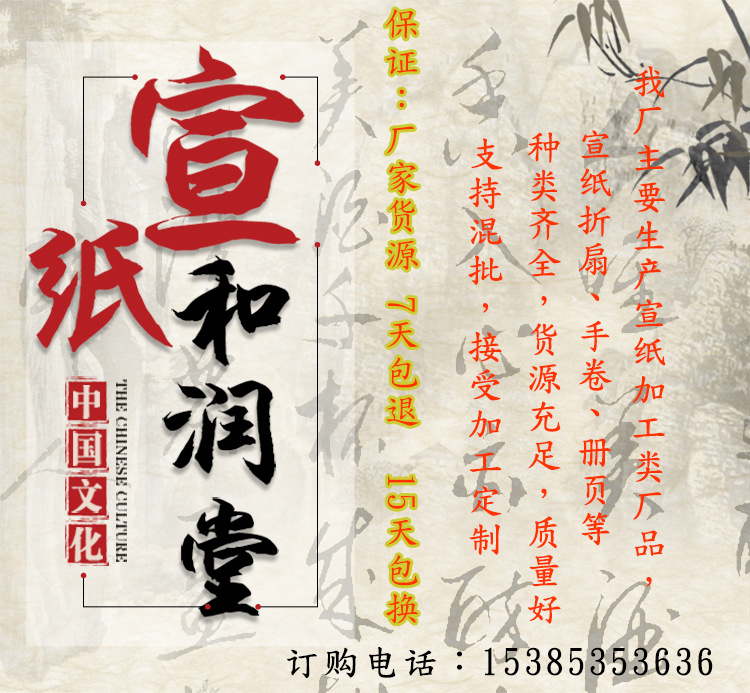 宣纸
和润堂
中国文化
THE CHINESE CULTURE
保证：厂家货源 7天包退 15天包换
我厂主要生产宣纸加工类厂品，
宣纸折扇、手卷、册页等
种类齐全，货源充足，质量好
支持混批，接受加工定制
订购电话：15385353636